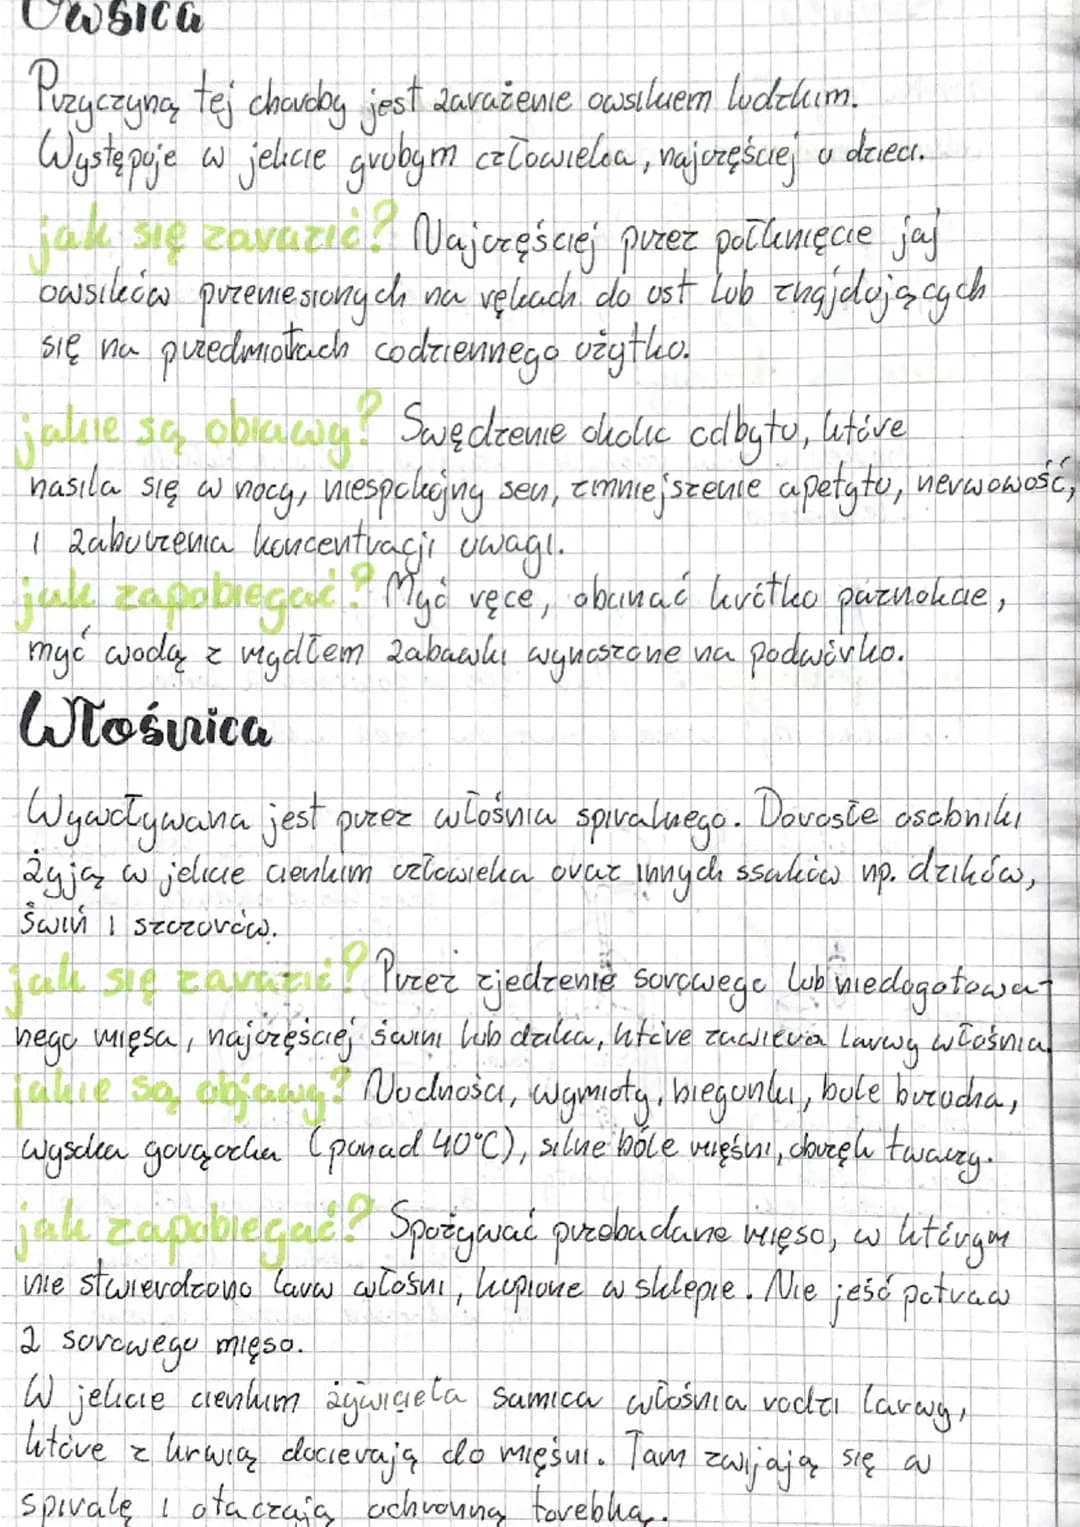 Owsica
Przyczyną tej choroby jest zarażenie owsikiem ludzkim.
Występuje w jelicie grubym człowieka, najczęściej u dzieci.
jak się zarazić? Najczęściej przez połknięcie jaj
owsików przeniesionych na rękach do ust lub znajdujących
się na przedmiotach codziennego użytku.
jakie są obiawy? Swędzenie okolic odbytu, które
nasila się w nocy, niespokojny sen, zmniejszenie apetytu, nerwowość,
i zaburzenia koncentracji uwagi.
jak zapobiegać? Myć ręce, obcinać krótko paznokcie,
myć wodą z mydłem zabawki wynoszone na podwórko.
Włośnica
Wywoływana jest przez włośnia spiralnego. Dorosłe osobniki
żyją w jelicie cienkim człowieka oraz innych ssaków np. dzików,
świń i szczurów.
jak się zarazić? Przez zjedzenie surowego lub niedogotowa-
nego mięsa, najczęściej świni lub dzika, które zawiera larwy włośnia.
jakie są objawy? Nudności, wymioty, biegunki, bóle brzucha,
wysoka gorączka (ponad 40°C), silne bóle mięśni, obrzęk twarzy.
jak zapobiegać? Spożywać przebadane mięso, w którym
nie stwierdzono larw włośni, kupione w sklepie. Nie jeść potraw
z surowego mięsa.
W jelicie cienkim żywiciela samica włośnia rodzi larwy,
które z krwią docierają do mięśni. Tam zwijają się w
spiralę i otaczają ochronną torebką.